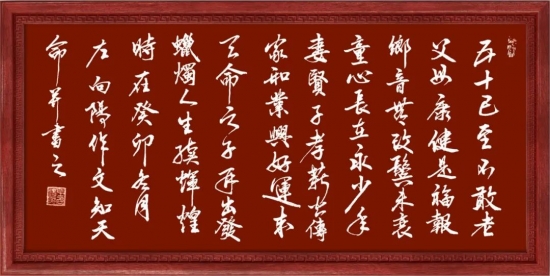 五十已至不敢老
父母康健是福報
鄉音無改鬢未衰
童心長在永少年
妻賢子孝薪火傳
家和業興好運來
天命之年再出發
蠟燭人生續輝煌
時在癸卯冬月
左向陽作文知天
命并書之